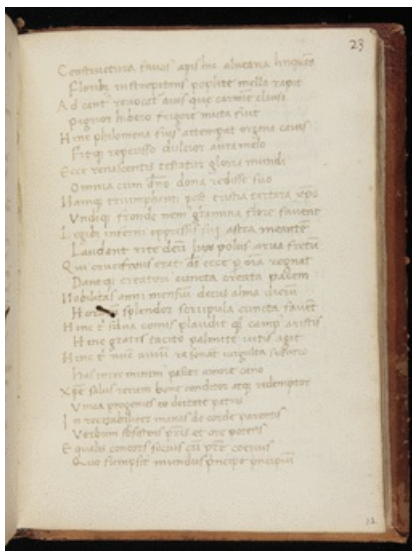 23
Constructura favis apis hic alvearia linquens
Floribus instrepitans poplite mella rapit
Ad cant revocat avis que carmine clauso
pigrior hiberno frigore muta fuit
Hinc philomena suis attemperat organa cannis
Fitq repercusso dulcior aura melo
Ecce renascentis testatur gloria mundi
Omnia cum dno dona redisse suo
Namq triumphanti post tristia tartara xpo
Undiq fronde nemus gramina flore favent
Legibus inferni oppressis sup astra meantem
Laudant rite deu lux polus arva fretu
Qui crucifixus erat ds ecce p oia regnat
Dantq creatori cuncta creata precem
Nobilitas anni mensiu decus alma dieru
Horarum splendor scripula cuncta favent
Hinc t silva comis plaudit q camp aristis
Hinc grates tacito palmite vitis agit
Hinc t nuc aviu resonat virgulta susurro
Has inter minim passer amore cano
Xpe salus rerum bone conditor atq redemptor
Unica progenies ex deitate patris
Irrecitabiliter manas de corde parentis
Verbum subsistens pris et ore potens
Equalis concors socius cu pre coevus
Quo sumpsit mundus principe principiu